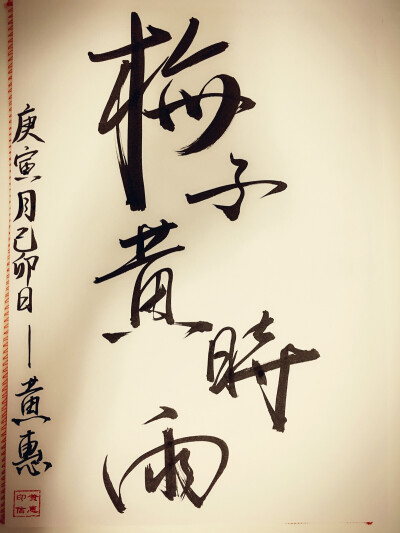 梅子黄時雨
庚寅月己卯日－黄惠
黄惠
印信